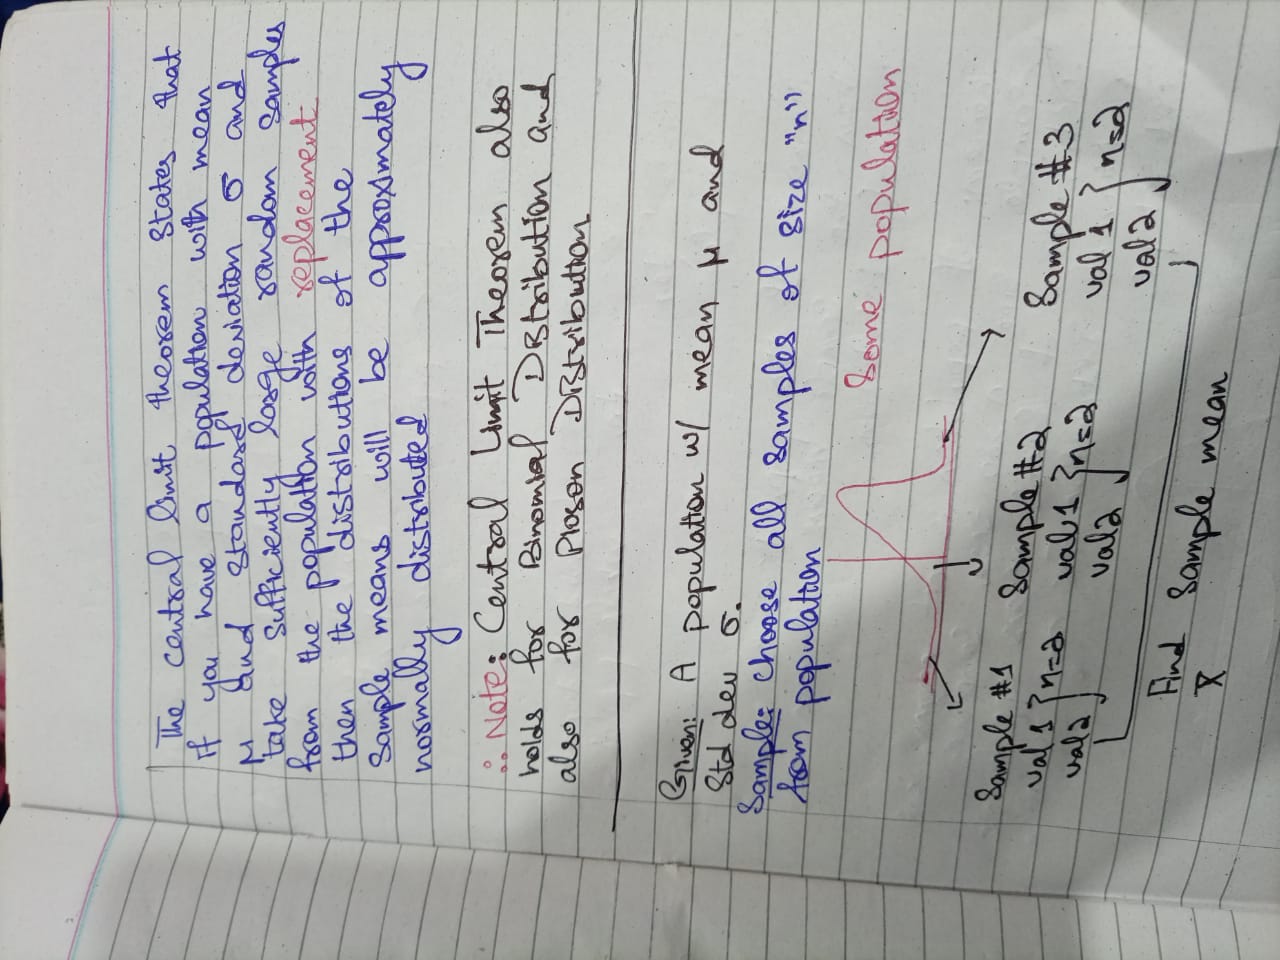 The central limit theorem states that
if you have a population with mean
μ and standard deviation σ and
take sufficiently large random samples
from the population with replacement
then the distributions of the
sample means will be approximately
normally distributed
∴ Note: Central Limit Theorem also
holds for Binomial Distribution and
also for Pioson Distribution
Given: A population w/ mean μ and
Std dev σ.
Sample: choose all samples of size "n"
from population
Some population
Sample #1
val 1
val2
} n=2
Sample #2
val 1
val2
} n=2
Sample #3
val 1
val2
} n=2
Find Sample mean
x̄